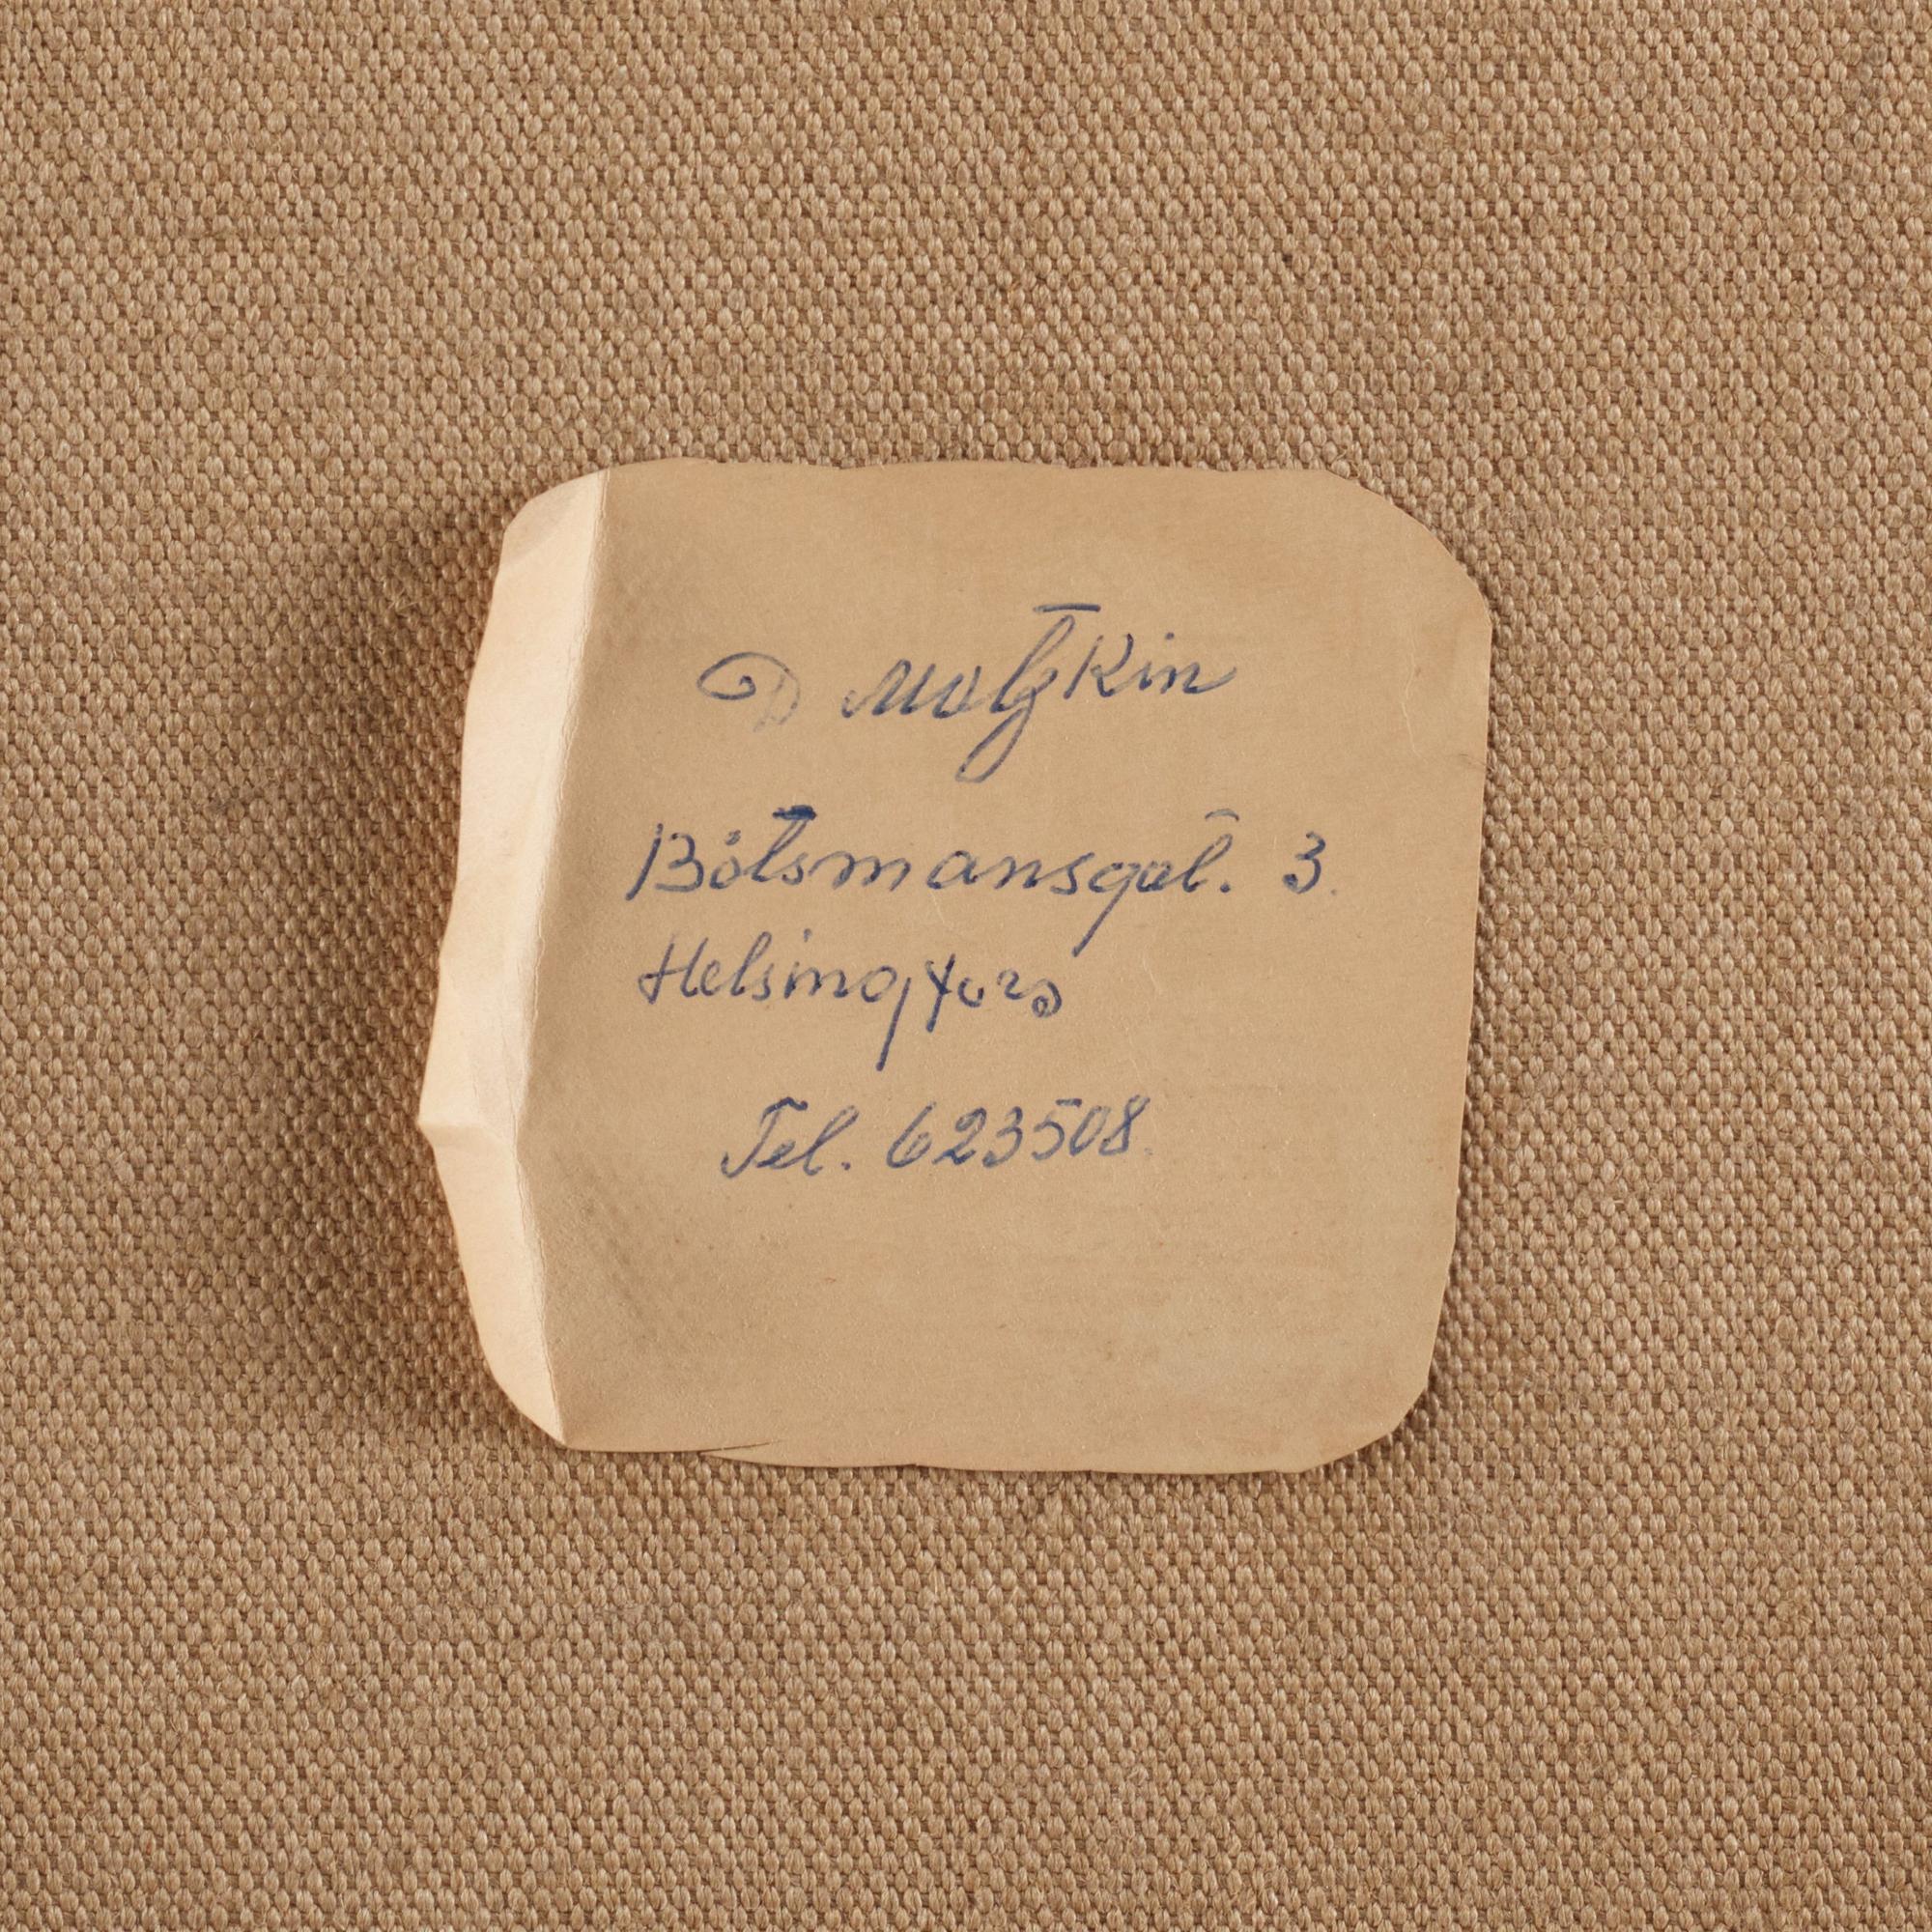 D Motzkin
Båtsmansgat. 3.
Helsingfors
Tel. 623508.